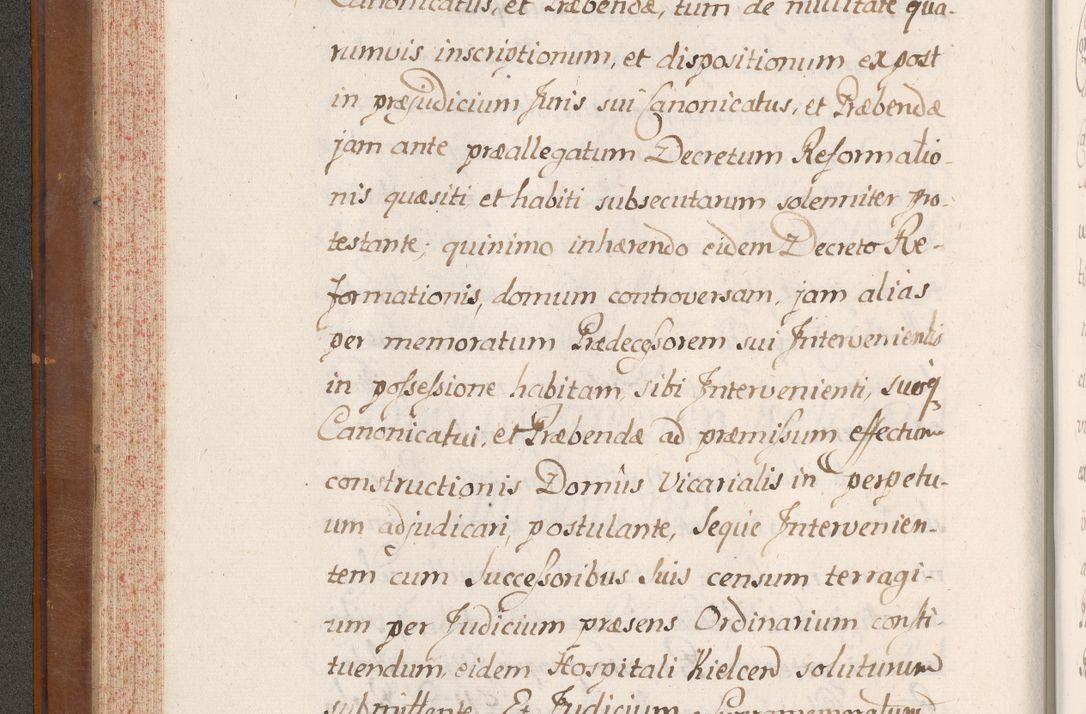 Canonicatus, et Præbendæ, tum de nullitate qua-
rumvis inscriptionum, et dispositionum ex post
in præjudicium Juris sui Canonicatus, et Præbendæ
jam ante præallegatum Decretum Reformatio-
nis quæsiti et habiti subsecutarum solenniter pro-
testante; quinimo inhærendo eidem Decreto Re-
formationis, domum controversam, jam alias
per memoratum Prædecessorem sui Intervenientis
in possessione habitam, sibi Intervenienti, suoq
Canonicatui, et Præbendæ ad præmissum effectum
constructionis Domûs Vicarialis in perpetu-
um adjudicari, postulante, Seque Intervenien-
tem cum Successoribus Suis censum terragi-
um per Judicium præsens Ordinarium consti-
tuendum, eidem Hospitali Kielcen soluturum
submittente. Et Judicium Supramemoratum